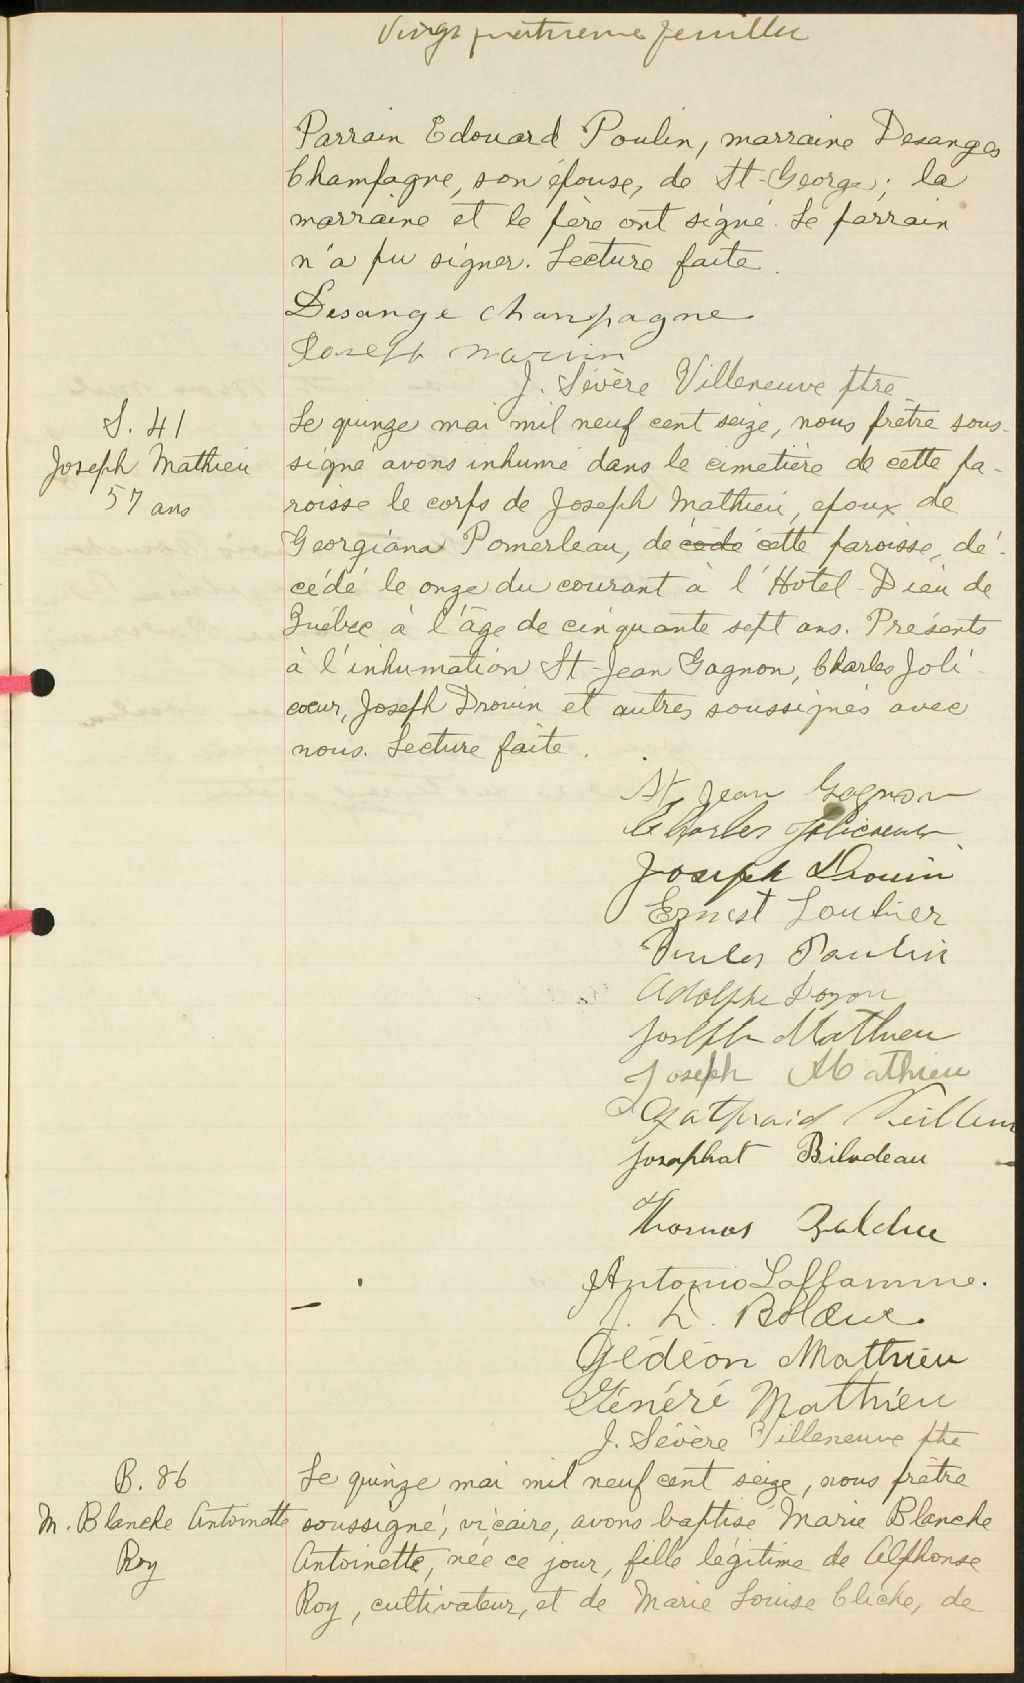 Vingt quatrieme feuillet
Parrain Edouard Poulin, marraine Desanges
Champagne, son épouse, de St-George; la
marraine et le père ont signé. Le parrain
n'a pu signer. Lecture faite.
Desange Champagne
Joseph
J. Sévère Villeneuve ptre
S. 41
Joseph Mathieu
57 ans
Le quinze mai mil neuf cent seize, nous prêtre sous-
signé avons inhumé dans le cimetière de cette pa-
roisse le corps de Joseph Mathieu, epoux de
Georgiana Pomerleau, de cette paroisse, dé-
cédé le onze du courant à l'Hotel-Dieu de
Québec à l'âge de cinquante sept ans. Présents
à l'inhumation St-Jean Gagnon, Charles Joli-
coeur, Joseph Drouin et autres soussignés avec
nous. Lecture faite.
St Jean Gagnon
Charles Jolicoeur
Joseph Drouin
Ernest Loubier
Poulin
Adolphe Doyon
Joseph Mathieu
Joseph Mathieu
Josaphat Bilodeau
Thomas Bolduc
Antonio Laflamme.
J. L. Bolduc
Gédéon Mathieu
Généré Mathieu
J. Sévère Villeneuve ptre
B. 86
M. Blanche Antoinette
Roy
Le quinze mai mil neuf cent seize, nous prêtre
soussigné, vicaire, avons baptisé Marie Blanche
Antoinette, née ce jour, fille légitime de Alphonse
Roy, cultivateur, et de Marie Louise Cliche, de